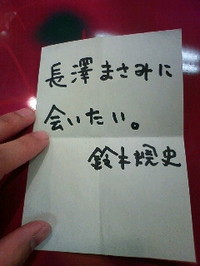 長澤まさみに
会いたい。
鈴木